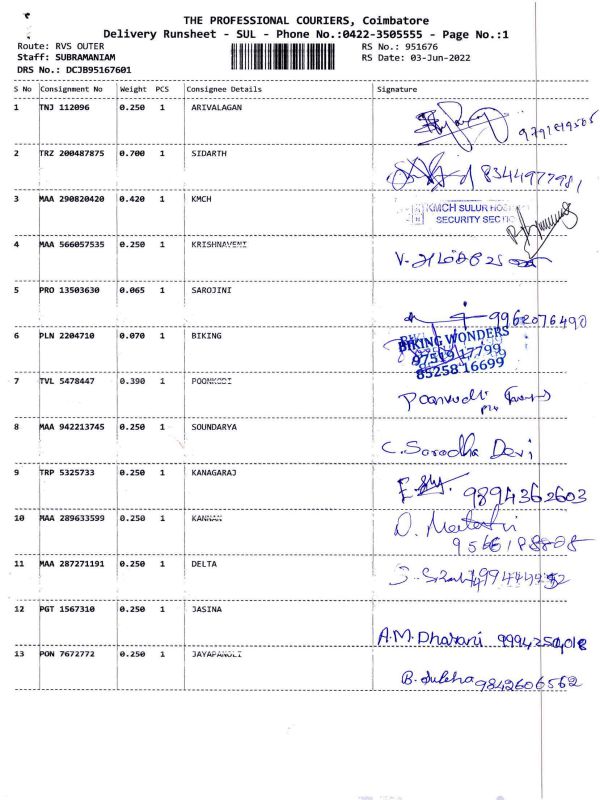 THE PROFESSIONAL COURIERS, Coimbatore
Delivery Runsheet - SUL - Phone No.:0422-3505555 - Page No.:1
Route: RVS OUTER RS No.: 951676
Staff: SUBRAMANIAM RS Date: 03-Jun-2022
DRS No.: DCJB95167601
S No Consignment No Weight PCS Consignee Details Signature
1 TNJ 112096 0.250 1 ARIVALAGAN
2 TRZ 200487875 0.700 1 SIDARTH
8344977981
3 MAA 290820420 0.420 1 KMCH
KMCH SULUR
SECURITY
4 MAA 566057535 0.250 1 KRISHNAVENI
5 PRO 13503630 0.065 1 SAROJINI
9962076490
6 PLN 2204710 0.070 1 BIKING
BIKING WONDERS
97519 17799
85258 16699
7 TVL 5478447 0.390 1 POONKODI
8 MAA 942213745 0.250 1 SOUNDARYA
C. Saradha Devi
9 TRP 5325733 0.250 1 KANAGARAJ
9894362603
10 MAA 289633599 0.250 1 KANNAN
11 MAA 287271191 0.250 1 DELTA
12 PGT 1567310 0.250 1 JASINA
A.M. Dharani
13 PON 7672772 0.250 1
9842606562